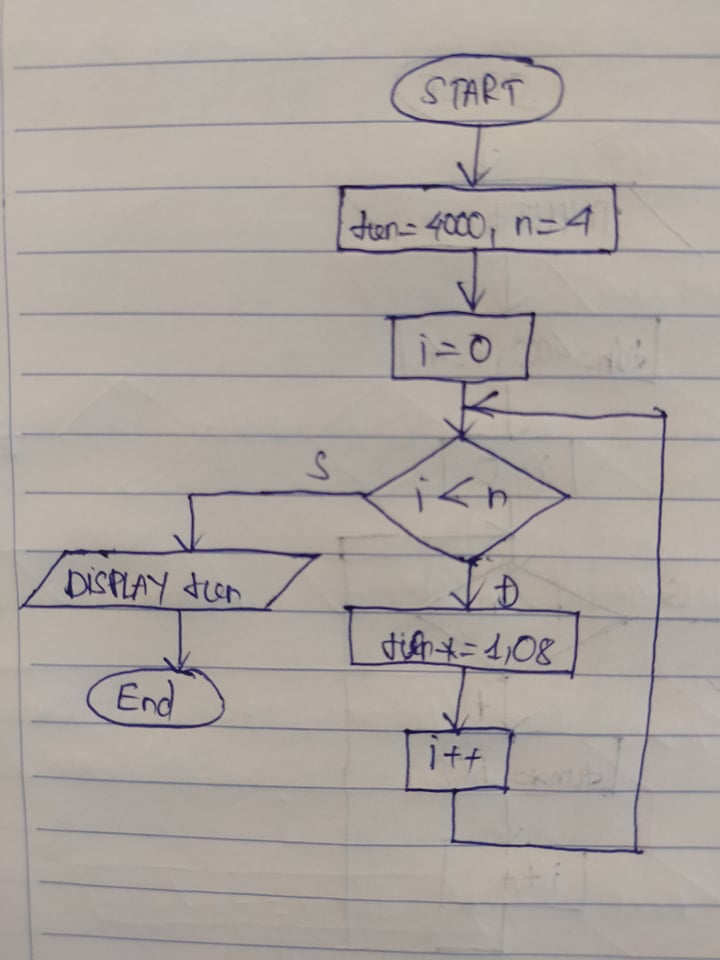 START
tien=4000, n=4
i=0
i<n
S
Đ
DISPLAY tien
tien*=1,08
End
i++